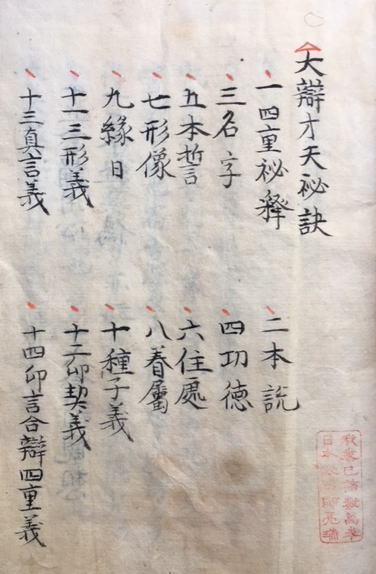 大辯才天祕訣
一四重祕釋
二本説
三名字
四功徳
五本誓
六住處
七形像
八眷屬
九緣日
十種子義
十一三形義
十二印契義
十三真言義
十四印言合辯四重義